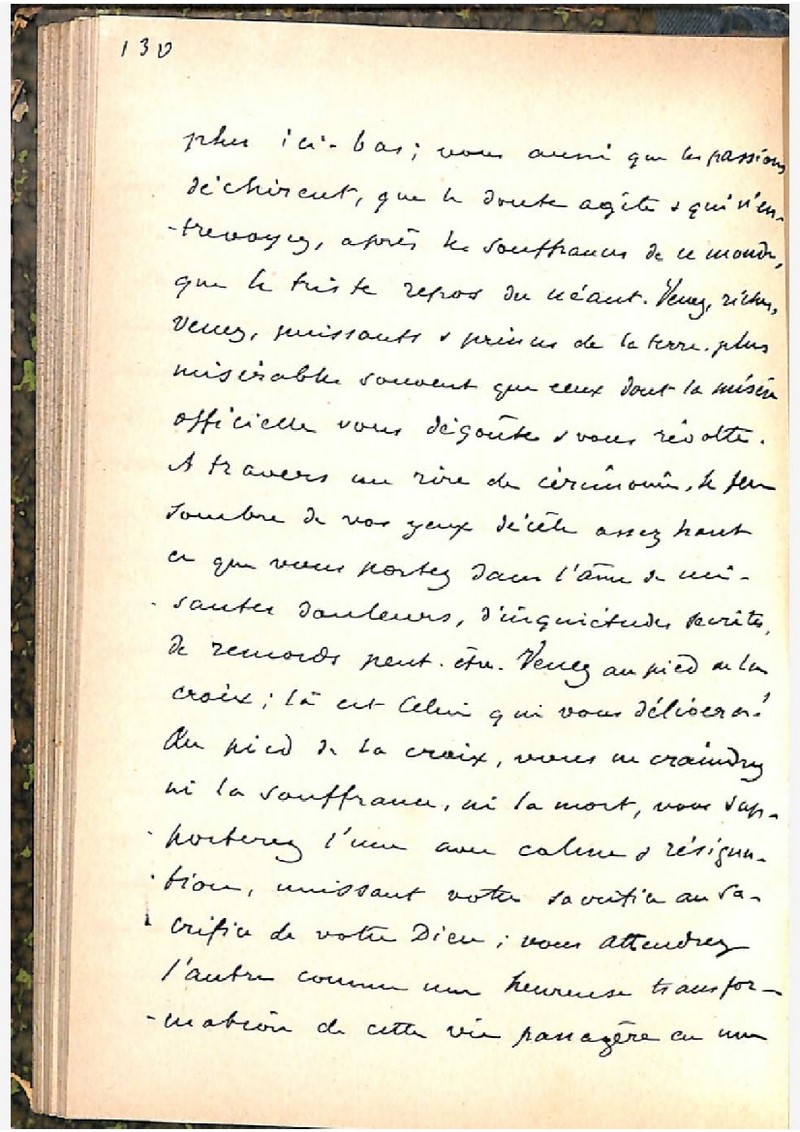 130
plus ici-bas; vous aussi que les passions
déchirent, que le doute agite & qui n'en-
-trevoyez, après les souffrances de ce monde,
que le triste repos du néant. Venez, riches,
venez, puissants & princes de la terre. plus
misérables souvent que ceux dont la misère
officielle vous dégoûte & vous révolte.
A travers un rire de cérémonie, le feu
sombre de vos yeux décèle assez haut
ce que vous portez dans l'âme de cui-
-santes douleurs, d'inquiétudes secrètes,
de remords peut-être. Venez au pied de la
croix; là est Celui qui vous délivrera!
Au pied de la croix, vous ne craindrez
ni la souffrance, ni la mort, vous sup-
-porterez l'une avec calme & résigna-
-tion, unissant votre sacrifice au sa-
-crifice de votre Dieu; vous attendrez
l'autre comme une heureuse transfor-
-mation de cette vie passagère en une